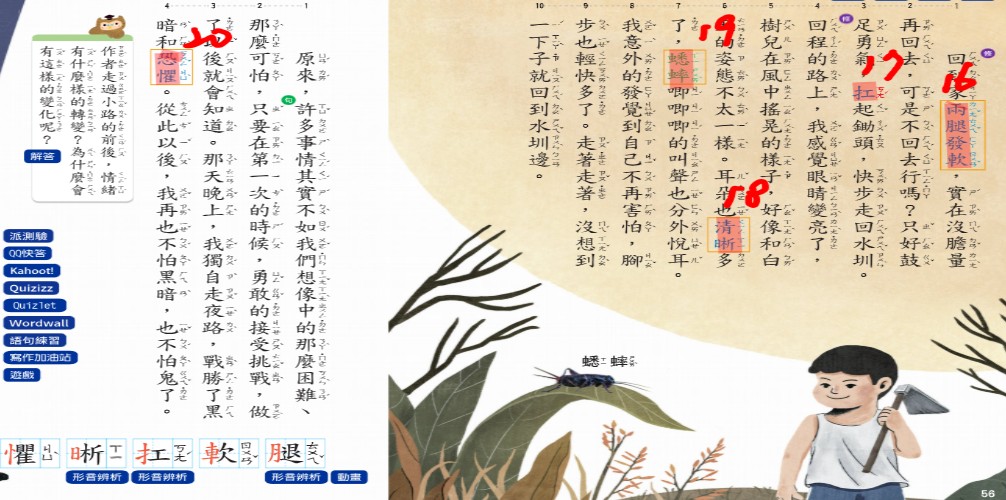 1 2 3 4 5 6 7 8 9 10
16
回到家兩腿發軟，實在沒膽量
修
再回去，可是不回去行嗎？只好鼓
17
足勇氣，扛起鋤頭，快步走回水圳。
修
回程的路上，我感覺眼睛變亮了，
樹兒在風中搖晃的樣子，好像和白
18
的姿態不太一樣。耳朵也清晰多
19
了，蟋蟀唧唧唧的叫聲也分外悅耳。
我意外的發覺到自己不再害怕，腳
步也輕快多了。走著走著，沒想到
一下子就回到水圳邊。
蟋蟀
56
1 2 3 4
原來，許多事情其實不如我們想像中的那麼困難、
句
那麼可怕，只要在第一次的時候，勇敢的接受挑戰，做
20
了後就會知道。那天晚上，我獨自走夜路，戰勝了黑
暗和恐懼。從此以後，我再也不怕黑暗，也不怕鬼了。
作者走過小路的前後，情緒
有什麼樣的轉變？為什麼會
有這樣的變化呢？
解答
派測驗
QQ快答
Kahoot!
Quizizz
Quizlet
Wordwall
語句練習
寫作加油站
遊戲
腿ㄊㄨㄟˇ
軟ㄖㄨㄢˇ
扛ㄎㄤˊ
晰ㄒㄧ
懼ㄐㄩˋ
形音辨析
形音辨析
形音辨析
動畫